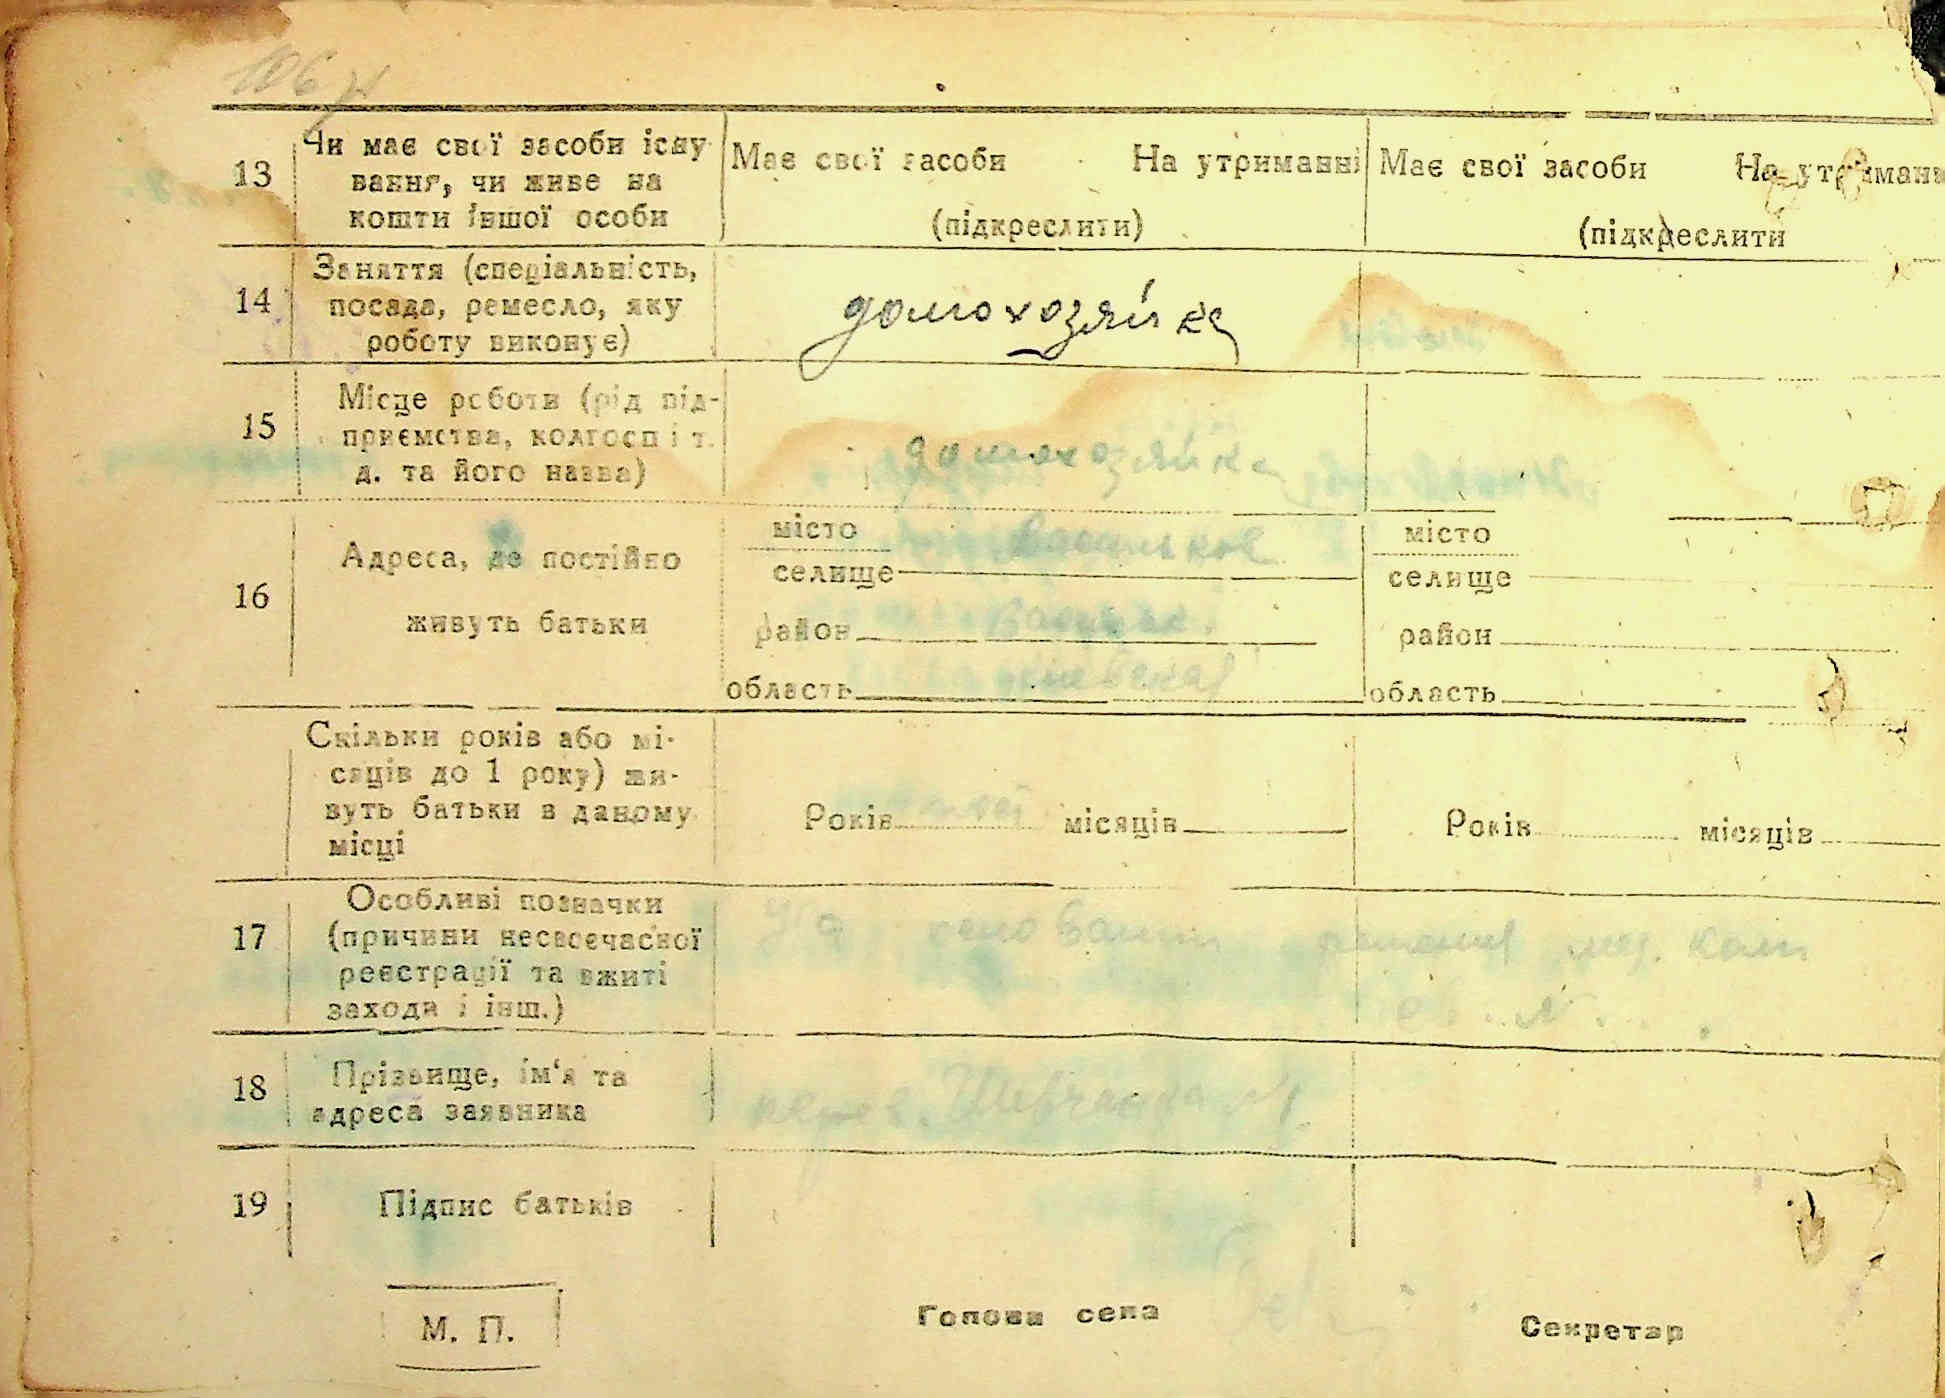 106
13 Чи має свої засоби існу Має свої засоби На утриманні Має свої засоби На утриман
вання, чи живе на
кошти іншої особи (підкреслити) (підкреслити
14 Заняття (спеціальність,
посада, ремесло, яку домохозяйка
роботу виконує)
15 Місце роботи (рід під-
приємства, колгосп і т. домохозяйка
д. та його назва)
16 Адреса, де постійно місто Васильков місто
селище селище
живуть батьки район район
область область
Скільки років або мі-
сяців до 1 року) жи-
вуть батьки в даному Років місяців Років місяців
місці
17 Особливі позначки
(причини несвоєчасної
реєстрації та вжиті
заходи і інш.)
18 Прізвище, ім‘я та
адреса заявника
19 Підпис батьків
М. П. Голова села Секретар